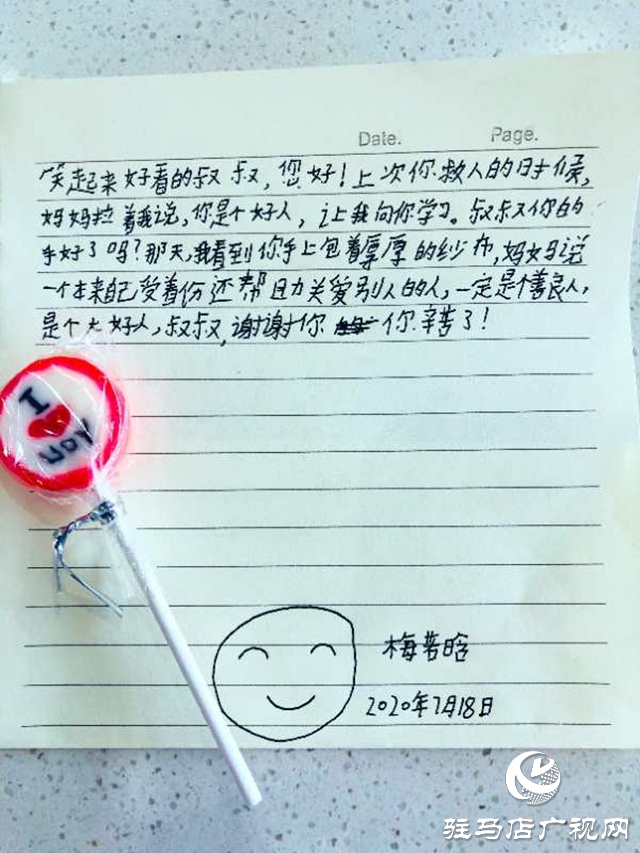 Date. Page.
笑起来好看的叔叔，您好！上次你救人的时候，
妈妈拉着我说，你是个好人，让我向你学习。叔叔你的
手好了吗？那天，我看到你手上包着厚厚的纱布，妈妈说
一个本来自己受着伤还帮助关爱别人的人，一定是个善良人，
是个大好人，叔叔，谢谢你 你辛苦了！
I ♥ you
梅若晗
2020年7月18日
驻马店广视网